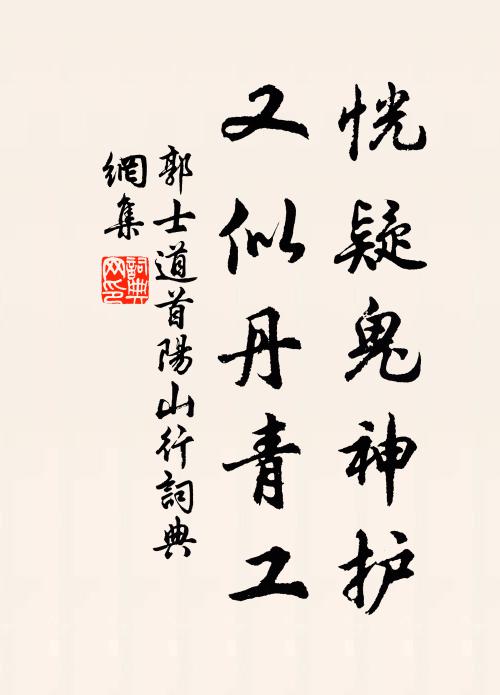 恍疑鬼神护
又似丹青工
郭士道首陽山行詞典
網集
詞典
网印